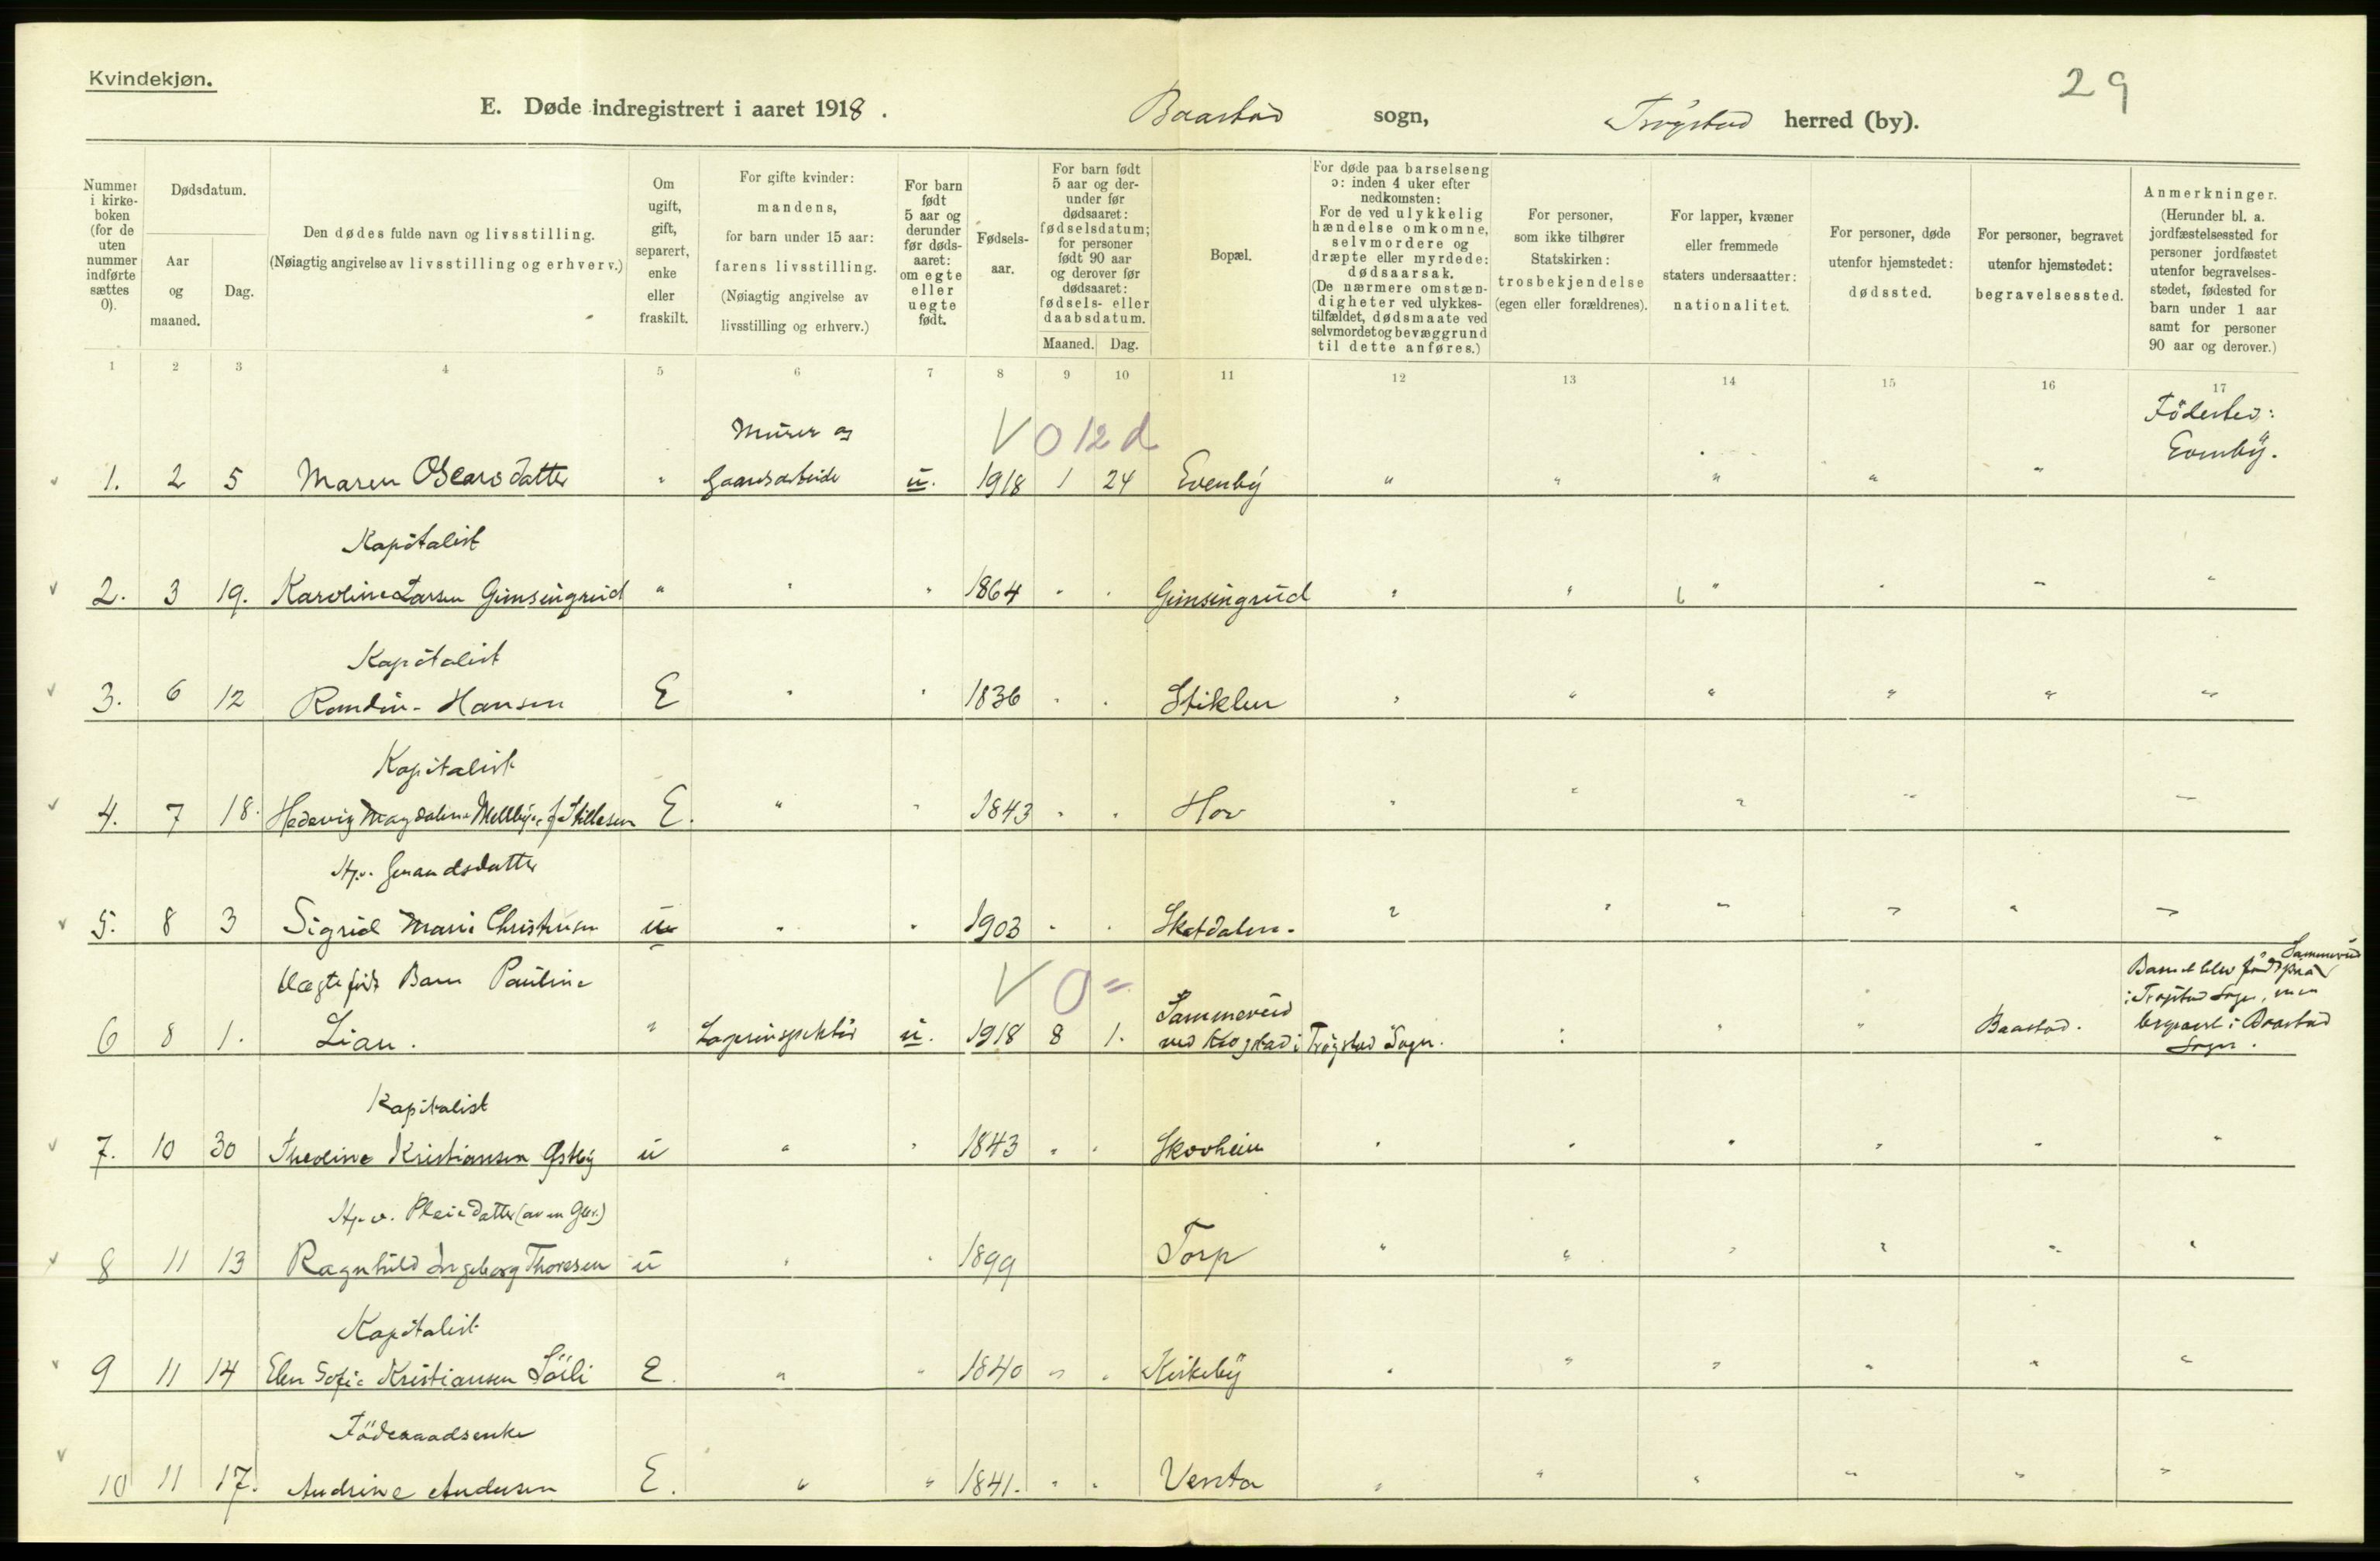 Kvindekjøn.
29
E. Døde indregistrert i aaret 1918. Baastad sogn, Trøgstad herred (by).
Nummer i kirkeboken (for de uten nummer indførte sættes 0).
Dødsdatum.
Aar og maaned.
Dag.
Den dødes fulde navn og livsstilling.
(Nøiagtig angivelse av livsstilling og erhverv.)
Om ugift, gift, separert, enke eller fraskilt.
For gifte kvinder: mandens, for barn under 15 aar: farens livsstilling. (Nøiagtig angivelse av livsstilling og erhverv.)
For barn født 5 aar og derunder før dødsaaret: om egte eller uegte født.
Fødselsaar.
For barn født 5 aar og derunder før dødsaaret: fødselsdatum; for personer født 90 aar og derover før dødsaaret: fødsels- eller daabsdatum.
Maaned. Dag.
Bopæl.
For døde paa barselseng ɔ: inden 4 uker efter nedkomsten: For de ved ulykkelig hændelse omkomne, selvmordere og dræpte eller myrdede: dødsaarsak. (De nærmere omstændigheter ved ulykkestilfældet, dødsmaate ved selvmordet og bevæggrund til dette anføres.)
For personer, som ikke tilhører Statskirken: trosbekjendelse (egen eller forældrenes).
For lapper, kvæner eller fremmede staters undersaatter: nationalitet.
For personer, døde utenfor hjemstedet: dødssted.
For personer, begravet utenfor hjemstedet: begravelsessted.
Anmerkninger. (Herunder bl. a. jordfæstelsessted for personer jordfæstet utenfor begravelsesstedet, fødested for barn under 1 aar samt for personer 90 aar og derover.)
1 2 3 4 5 6 7 8 9 10 11 12 13 14 15 16 17
Murer og V 0 12 d Födested:
Evenby.
1. 2 5 Maren Oscarsdatter " Gaardsarbeide u. 1918 1 24 Evenby " " " " "
Kapitalist
2. 3 19. Karoline Larsen Gimsingrud " " " 1864 " " Gimsingrud " " " " " "
Kapitalist
3. 6 12 Randin Hansen E " " 1836 " " Stiklen " " " " " "
Kapitalist
4. 7 18. Hedevig Magdalene Mellbye f. Stillesen E. " " 1843 " " Hov " " " " "
Hj.v. Gmandsdatter
5. 8 3 Sigrid Marie Christensen u " " 1903 " " Skotdalen. " " " " " "
Uægte født Barn Pauline V 0 = Sammerud Barnet blev født paa Sammerud
i Trøgstad Sogn, men
6 8 1. Lian. " Lagerinspektør u. 1918 8 1. ved Klogstad i Trögstad Sogn. " " " Baastad. begravet i Baastad
Sogn.
Kapitalist
7. 10 30 Theoline Kristiansen Østby u " " 1843 " " Skovheim " " " " " "
Hj.v. Pleiedatter (av en Gbr.)
8 11 13 Ragnhild Ingeborg Thoresen u " " 1899 Torp " " " " " "
Kapitalist
9 11 14 Elen Sofie Kristiansen Sörli E. " " 1840 " " Kirkeby " " " " " "
Föderaadsenke
10 11 17. Andrine Andersen E. " " 1841. " " Venta " " " " " "